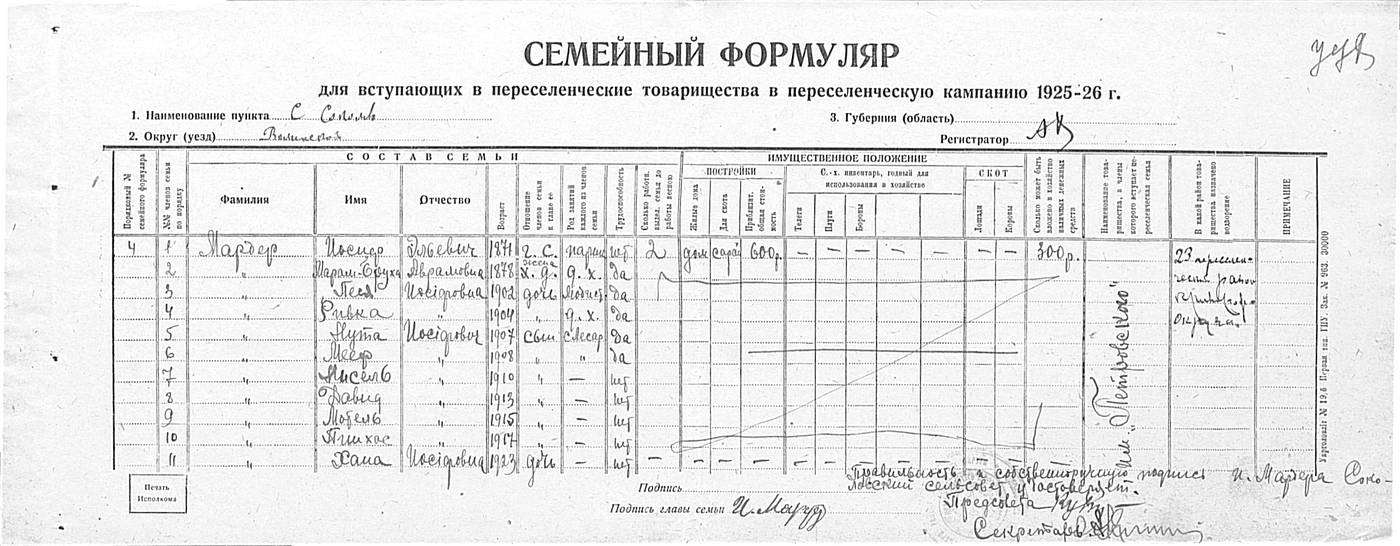 СЕМЕЙНЫЙ ФОРМУЛЯР
для вступающих в переселенческие товарищества в переселенческую кампанию 1925-26 г.
1. Наименование пункта С
3. Губерния (область)
2. Округ (уезд)
Регистратор
СОСТАВ СЕМЬИ
ИМУЩЕСТВЕННОЕ ПОЛОЖЕНИЕ
ПОСТРОЙКИ
С.-х. инвентарь, годный для использования в хозяйстве
СКОТ
Порядковый № семейного формуляра
№№ членов семьи по порядку
Фамилия
Имя
Отчество
Возраст
Отношение членов семьи к главе ее
Род занятий каждого из членов семьи
Трудоспособность
Сколько работн. выдел. семья до работы весною
Жилые дома
Для скота
Приблизит. общая стоимость
Телеги
Плуги
Бороны
Лошади
Коровы
Сколько может быть вложено в хозяйство наличных денежных средств
Наименование товарищества, в члены которого вступает переселенческая семья
В какой район товарищества назначено водворение
ПРИМЕЧАНИЕ
4 1 Мардер Иосиф 1871 г. с. нет 2 дом сарай 600 р. — — — — — 300 р.
2 " Аврамовна 1878 жена д. х. да
3 " Песя Иосифовна 1902 дочь да
4 " Ривка " 1904 " д. х. да
5 " Нута Иосифович 1907 сын слесар да
6 " Меер " 1908 " " да
7 " " 1910 " — нет
8 " Давид " 1913 " — нет
9 " Мотель " 1915 " — нет
10 " Пинхас " 1917 " — нет
11 " Хана Иосифовна 1923 дочь — нет
им. „Петровского"
23 переселен-
район
округа.
Правильность и собственноручную подпись И. Мардера Соко-
сельсовет удостоверяет.
Печать
Исполкома
Подпись
Предсовета
Подпись главы семьи И. Мардер
Секретарь
Харполлит № 19,6 Первая тип. ГПУ. Зак. № 963. 30000